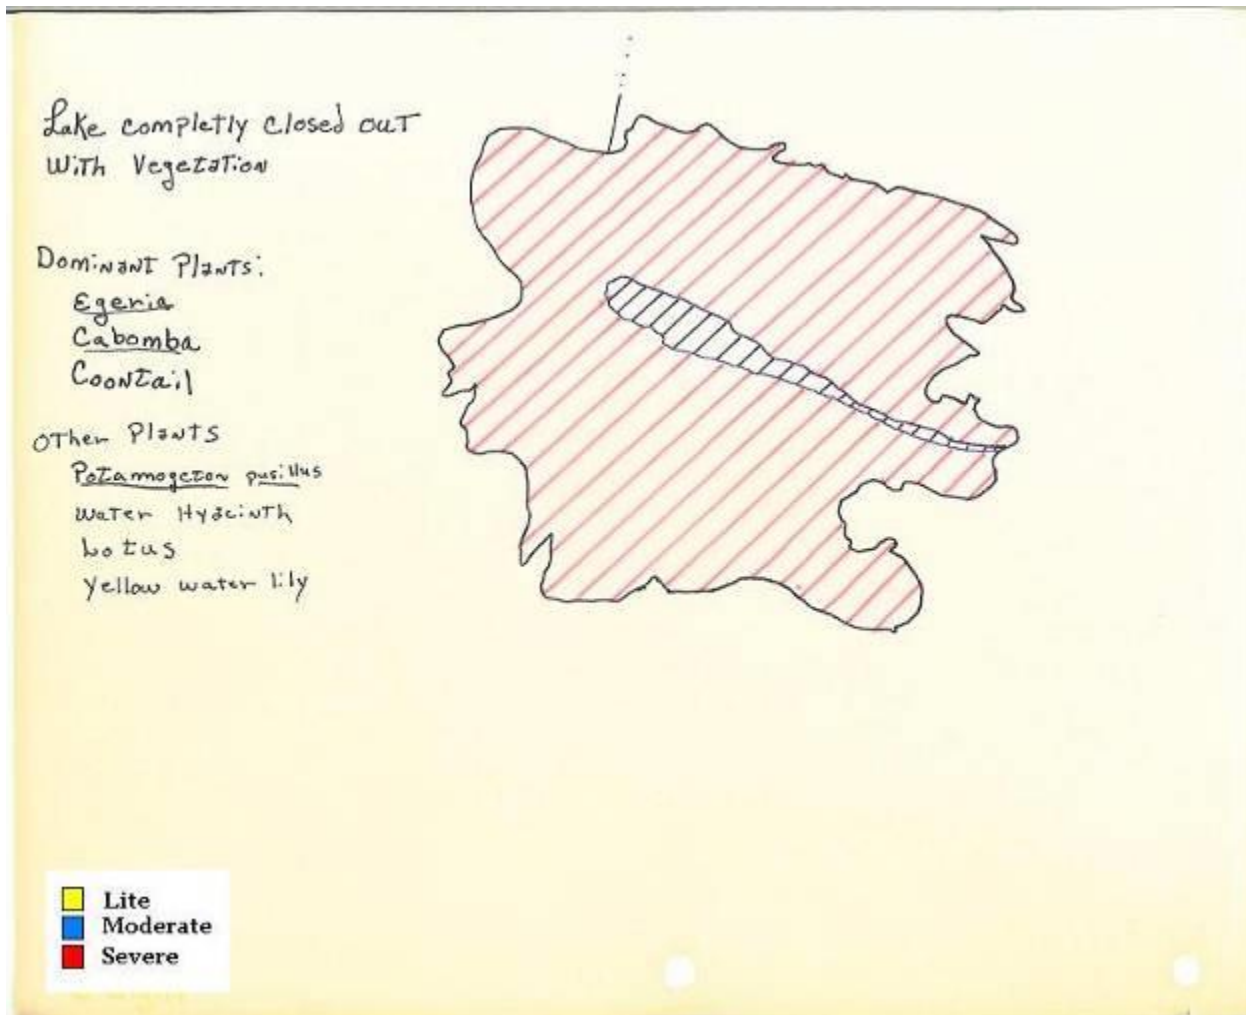 Lake completly closed out
With Vegetation
Dominant Plants:
Egeria
Cabomba
Coontail
Other Plants
Potamogeton pusillus
Water Hyacinth
Lotus
Yellow water lily
Lite
Moderate
Severe